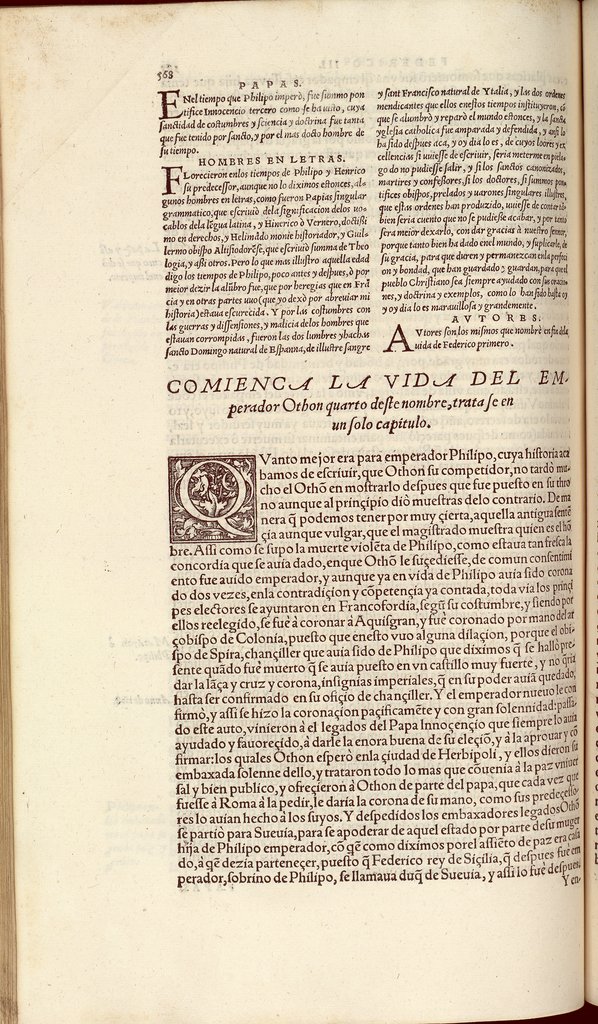 568
PAPAS.
ENel tiempo que Philipo imperò, fue summo pon
tifice Innocencio tercero como se ha visto, cuya
sanctidad de costumbres y sciencia y doctrina fue tanta
que fue tenido por sancto, y por el mas docto hombre de
su tiempo.
HOMBRES EN LETRAS.
FLorecieron enlos tiempos de Philipo y Henrico
su predecessor, aunque no lo diximos estonces, al-
gunos hombres en letras, como fueron Papias singular
grammatico, que escriuiò dela significacion delos vo-
cablos dela lẽgua latina, y Hinerico ò Vernero, doctissi
mo en derechos, y Helinãdo monje historiador, y Guil-
lermo obispo Altisiodorẽse, que escriuiò summa de Theo
logia, y assi otros. Pero lo que mas illustro aquella edad
digo los tiempos de Philipo, poco antes y despues, ò por
mejor dezir la alũbro fue, que por heregias que en Frã
cia y en otras partes uuo (que yo dexo por abreuiar mi
historia) estaua escurecida. Y por las costumbres con
las guerras y dissensiones, y malicia delos hombres que
estauan corrompidas, fueron las dos lumbres y hachas
sancto Domingo natural de Espanna, de illustre sangre
y sant Francisco natural de Ytalia, y las dos ordenes
mendicantes que ellos enestos tiempos instituyeron, cõ
que se alumbrò y reparò el mundo estonces, y la sancta
yglesia catholica fue amparada y defendida, y assi lo
ha sido despues aca, y oy dia lo es, de cuyos loores y ex
cellencias si uuiesse de escriuir, seria meterme en pie
go do no pudiesse salir, y si los sanctos canonizados,
martires y confessores, si los doctores, si summos pon
tifices obispos, prelados y uarones singulares illustres,
que estas ordenes han produzido, uuiesse de contar tã
bien seria cuento que no se pudiesse acabar, y por tanto
sera mejor dexarlo, con dar gracias à nuestro sennor,
porque tanto bien ha dado enel mundo, y suplicarle, de
su gracia, para que duren y permanezcan enla perfeci
on y bondad, que han guardado y guardan, para que el
pueblo Christiano sea siempre ayudado con sus oracio
nes, y doctrina y exemplos, como lo han sido hasta oy
y oy dia lo es marauillosa y grandemente.
AVTORES.
AVtores son los mismos que nombrè en fin dela
uida de Federico primero.
COMIENCA LA VIDA DEL EM-
perador Othon quarto deste nombre, trata se en
un solo capitulo.
QVanto mejor era para emperador Philipo, cuya historia aca
bamos de escriuir, que Othon su competidor, no tardò mu-
cho el Othõ en mostrarlo despues que fue puesto en su thro
no aunque al prinçipio diò muestras delo contrario. De ma
nera q̃ podemos tener por muy çierta, aquella antigua sentẽ
çia aunque vulgar, que el magistrado muestra quien es el hõ
bre. Assi como se supo la muerte violẽta de Philipo, como estaua tan fresca la
concordia que se auia dado, enque Othõ le suçediesse, de comun consentimi
ento fue auido emperador, y aunque ya en vida de Philipo auia sido corona
do dos vezes, enla contradiçion y cõpetençia ya contada, toda via los prinçi
pes electores se ayuntaron en Francofordia, segũ su costumbre, y siendo por
ellos reelegido, se fue à coronar à Aquisgran, y fue coronado por mano del ar
çobispo de Colonia, puesto que enesto vuo alguna dilaçion, porque el obi-
spo de Spira, chançiller que auia sido de Philipo que diximos q̃ se hallò pre-
sente quãdo fue muerto q̃ se auia puesto en vn castillo muy fuerte, y no q̃ria
dar la lãça y cruz y corona, insignias imperiales, q̃ en su poder auiã quedado,
hasta ser confirmado en su ofiçio de chançiller. Y el emperador nueuo le con
firmò, y assi se hizo la coronaçion paçificamẽte y con gran solennidad: passa
do este auto, vinieron à el legados del Papa Innoçençio que siempre lo auia
ayudado y fauoreçido, à darle la enora buena de su eleçiõ, y à la aprouar y cõ
firmar: los quales Othon esperò enla çiudad de Herbipoli, y ellos dieron su
embaxada solenne dello, y trataron todo lo mas que cõuenia à la paz vniuer
sal y bien publico, y ofreçieron à Othon de parte del papa, que cada vez que
fuesse à Roma à la pedir, le daria la corona de su mano, como sus predeçesso-
res lo auian hecho à los suyos. Y despedidos los embaxadores legados Othõ
se partiò para Sueuia, para se apoderar de aquel estado por parte de su muger
hija de Philipo emperador, cõ q̃ como diximos por el assiẽto de paz era casa
do, à q̃ dezia parteneçer, puesto q̃ Federico rey de Siçilia, q̃ despues fue em
perador, sobrino de Philipo, se llamaua duq̃ de Sueuia, y assi lo fue despues.
Y en-